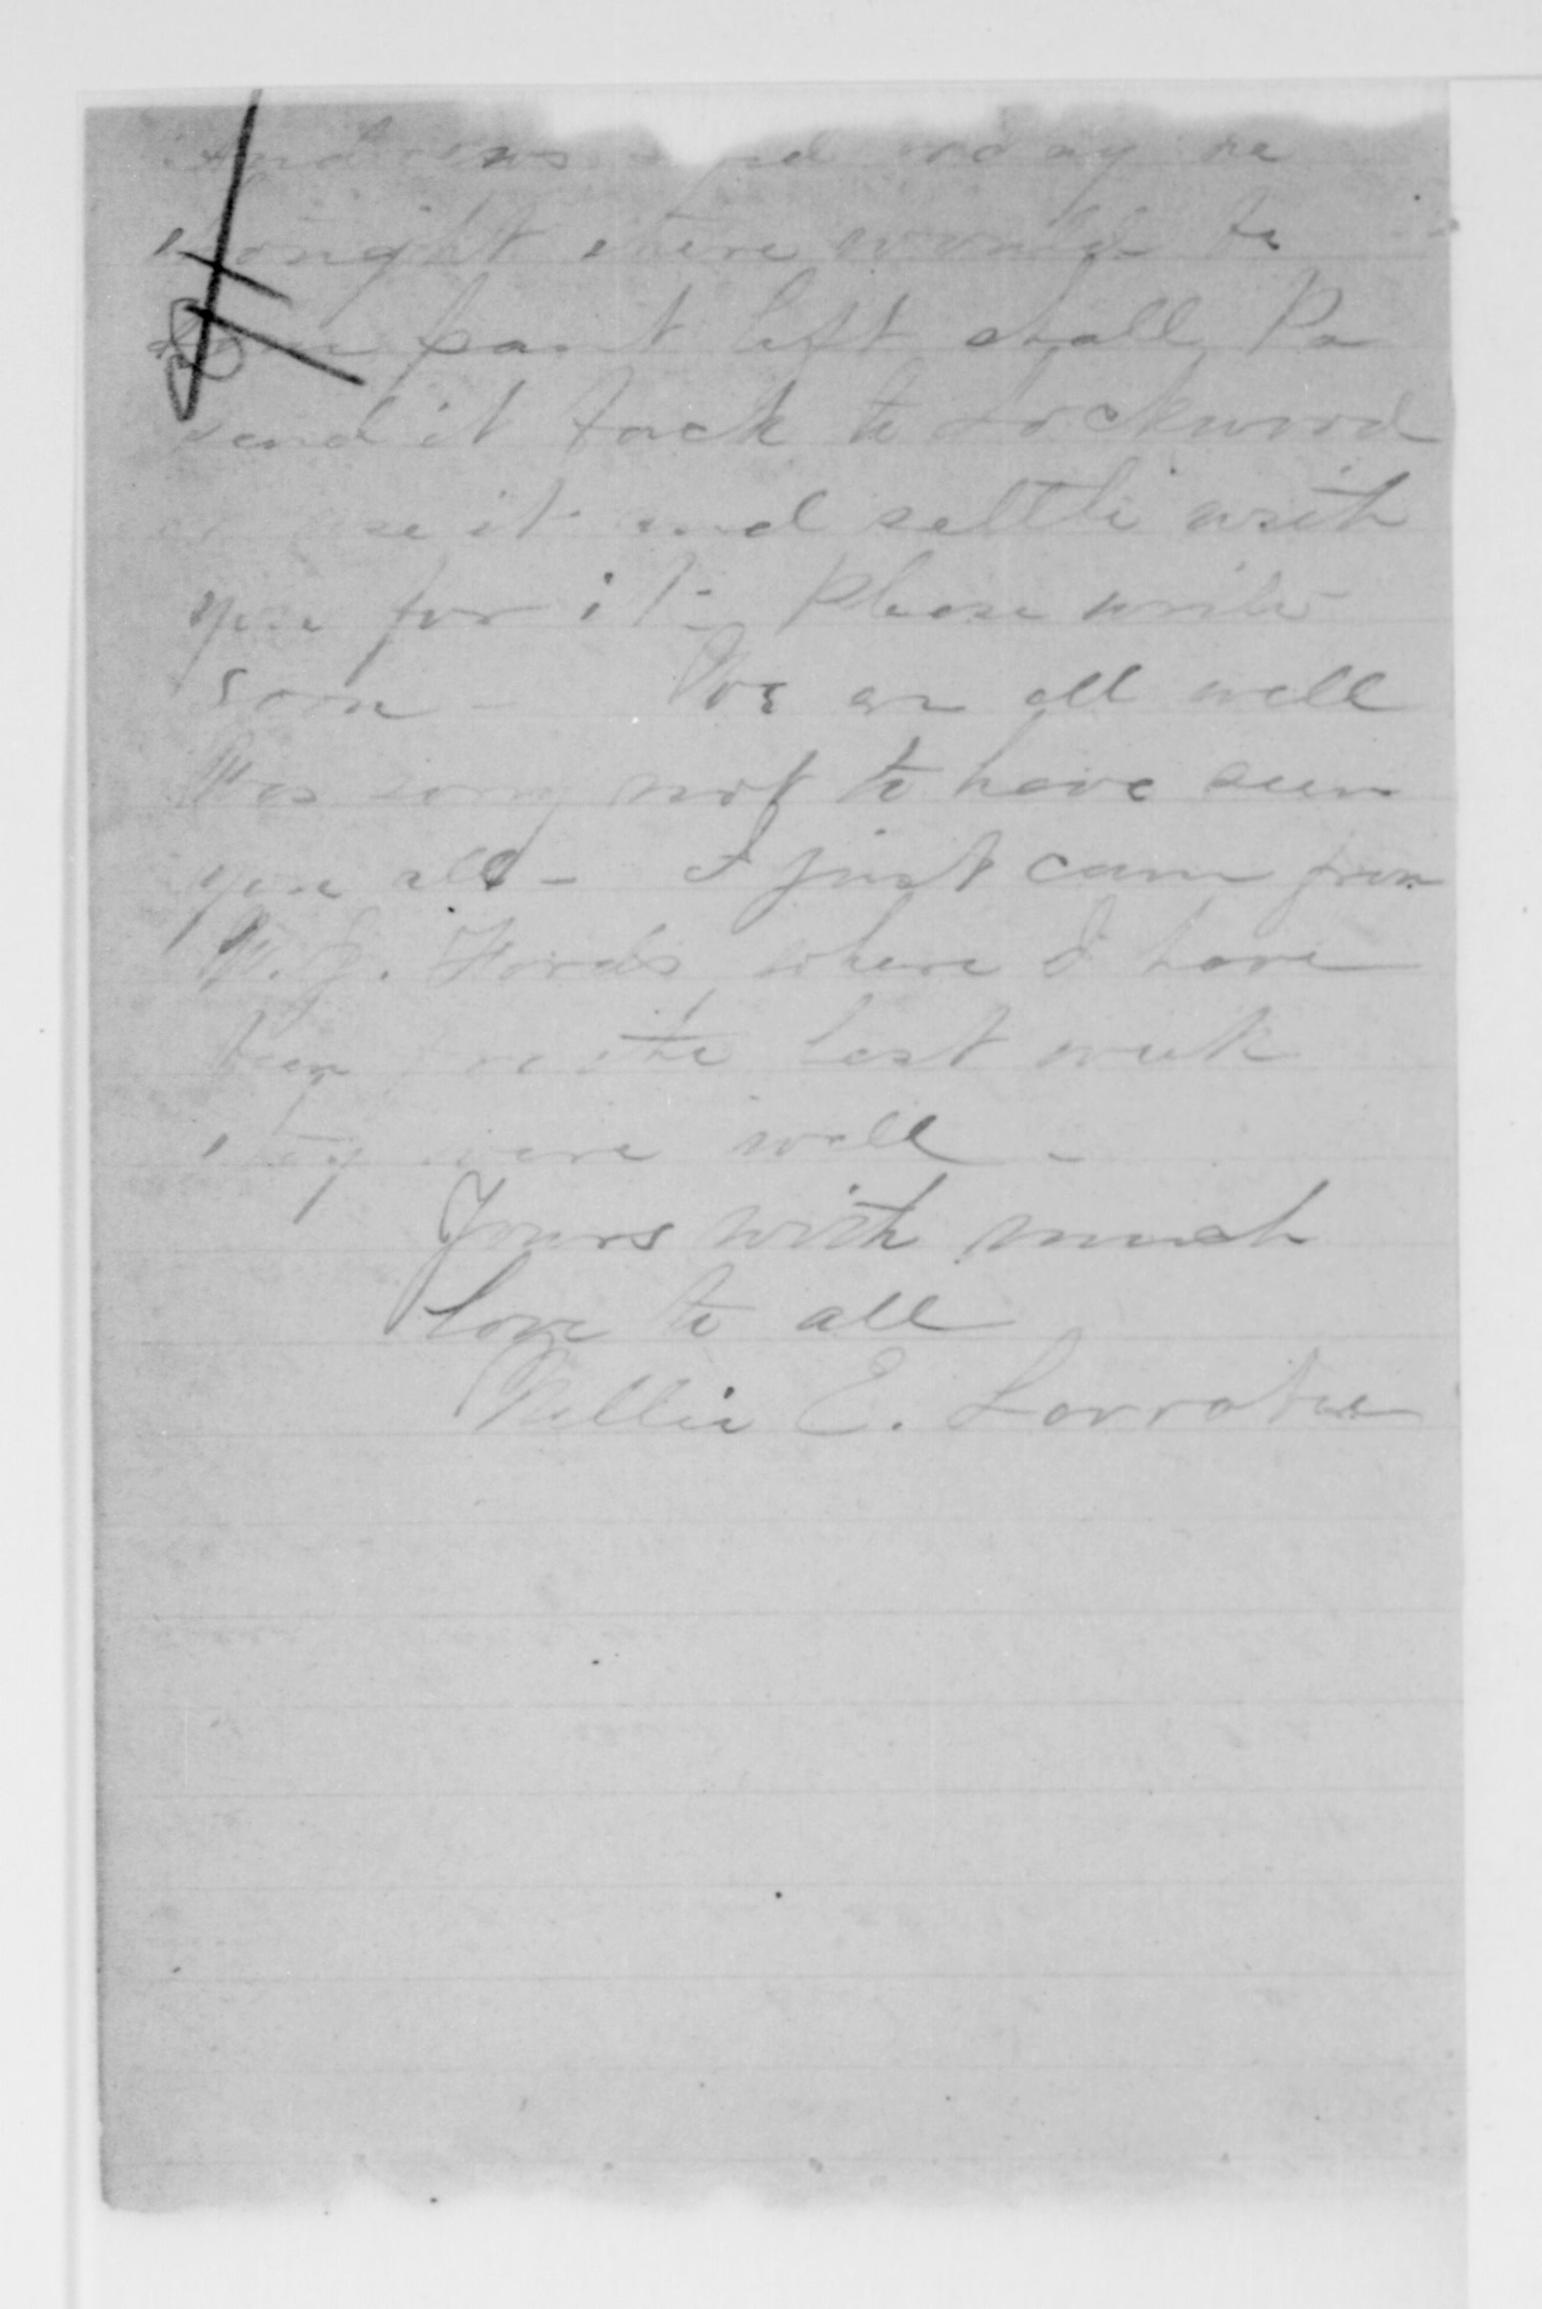 thought there would be
paint left shall Pa
send it back to Lockwood
or use it and settle with
you for it - Please write
soon - We are all well
Was sorry not to have seen
you all - I just came from
W. J. Fords where I have
been for the last week
they were well -
Yours with much
love to all
Nellie E.